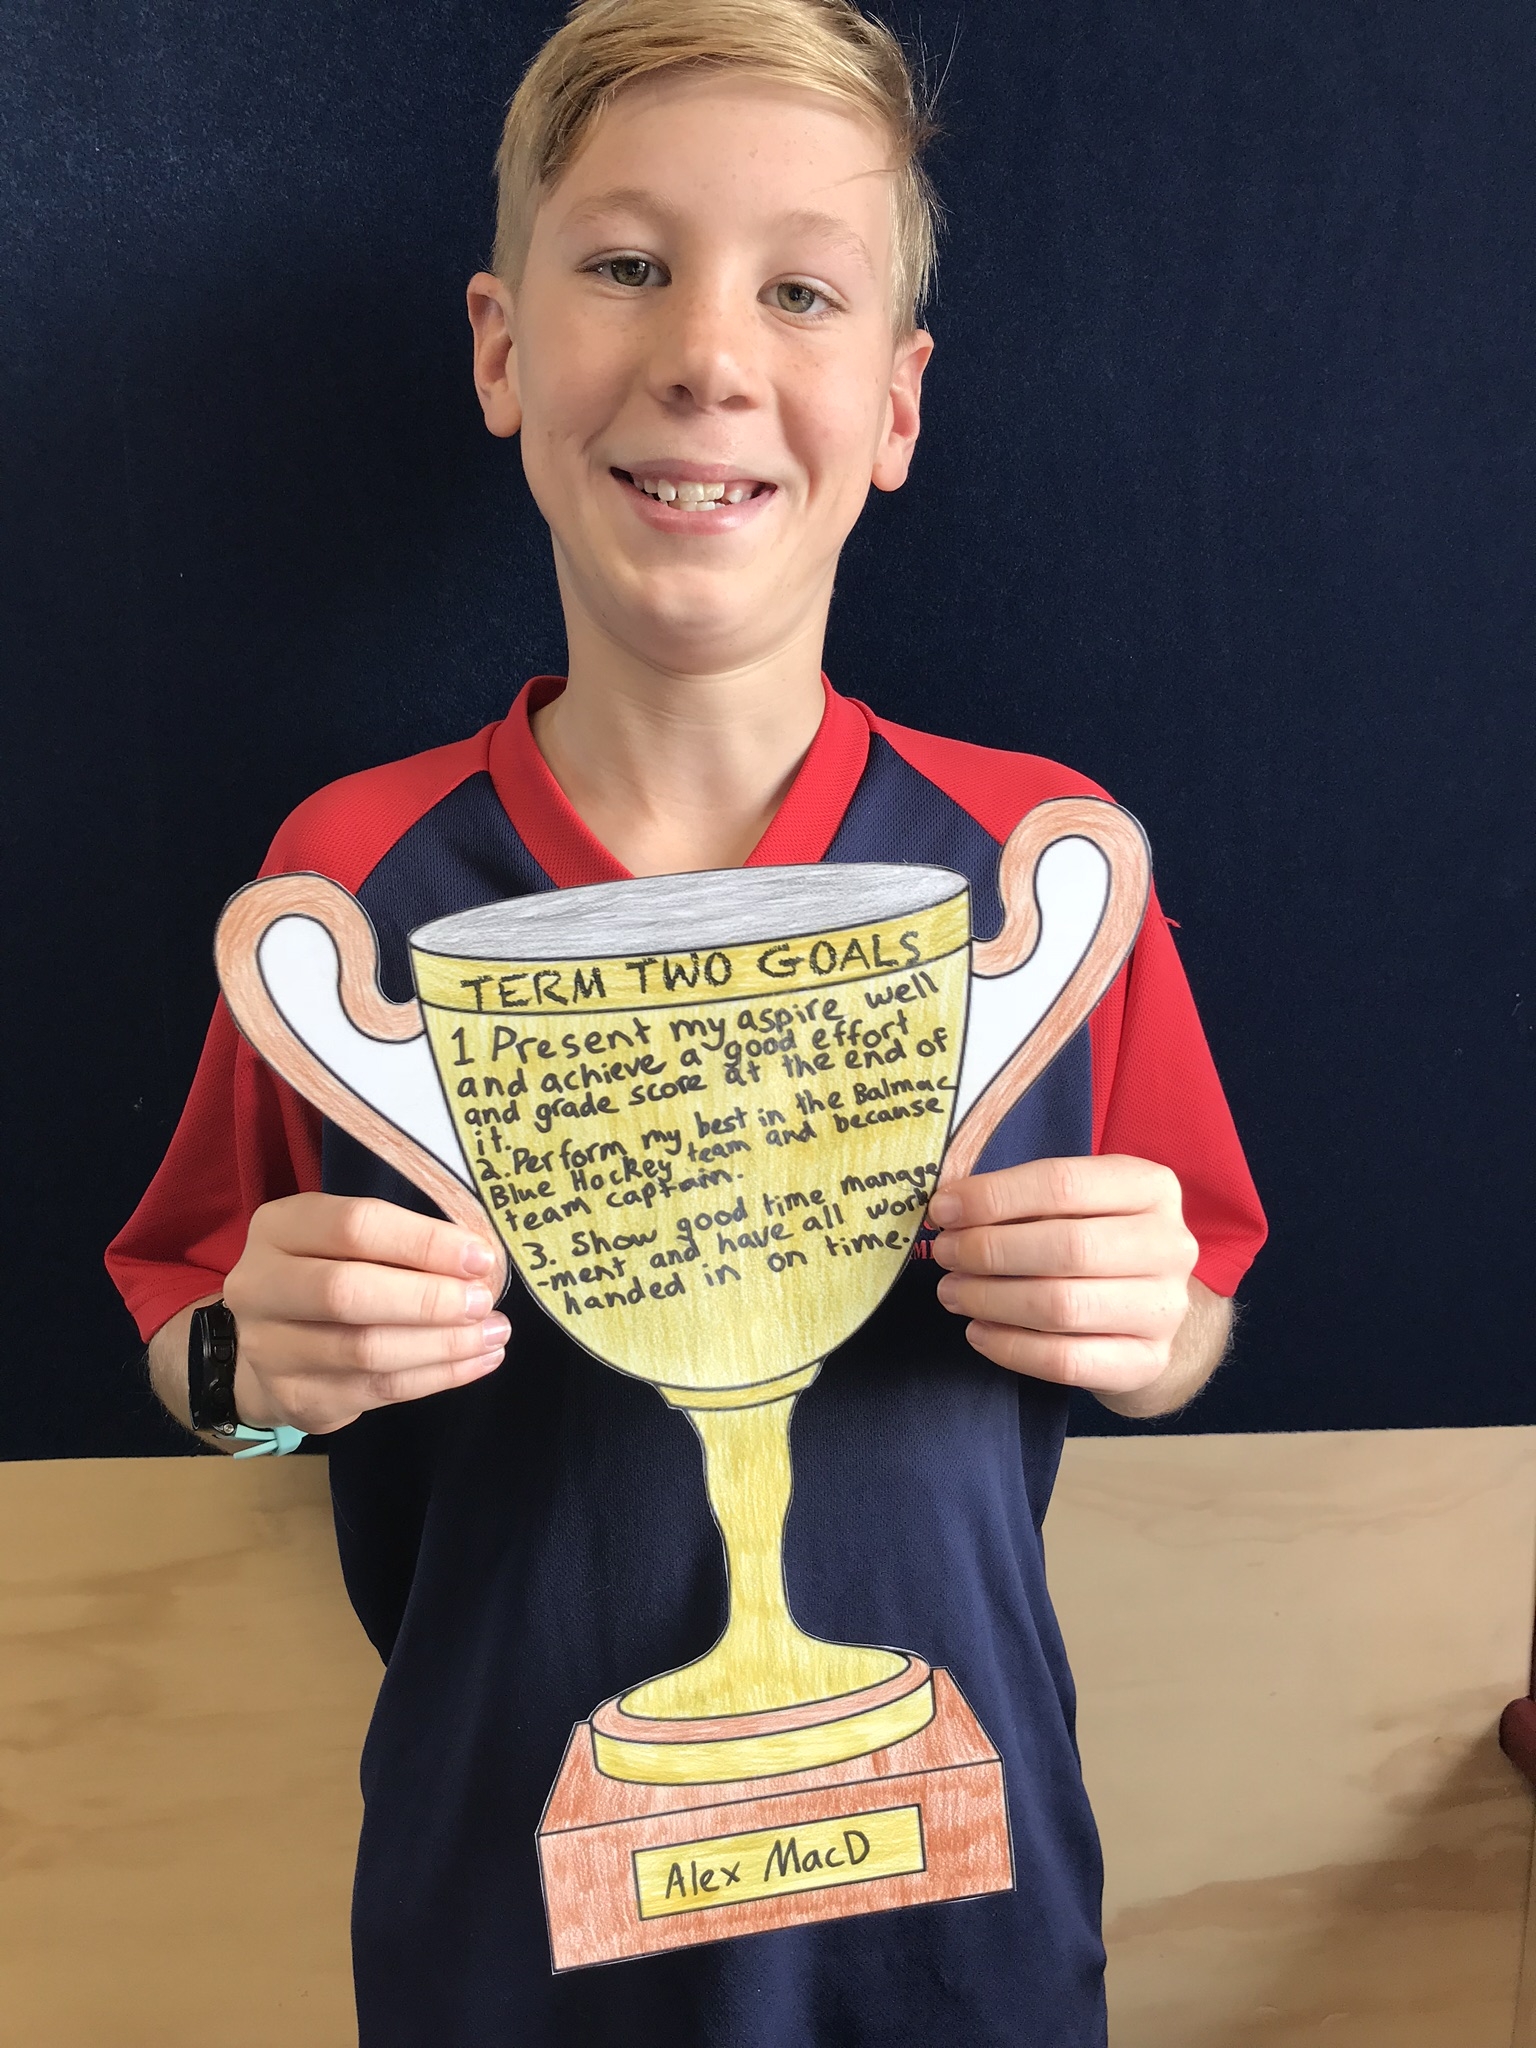 TERM TWO GOALS
1 Present my aspire well
and achieve a good effort
and grade score at the end of
it.
2. Perform my best in the Balmac
Blue Hockey team and because
team captain.
3. Show good time manage
-ment and have all work
handed in on time.
Alex MacD